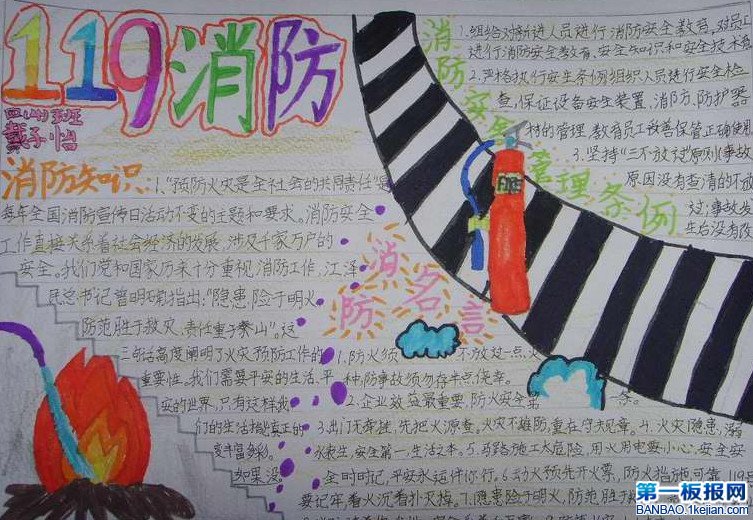 119消防
四(4)班
戴子怡
消防知识:1."预防火灾是全社会的共同责任"是
每年全国消防宣传日活动不变的主题和要求。消防安全
工作直接关系着社会经济的发展,涉及千家万户的
安全。我们党和国家历来十分重视消防工作,江泽
民总书记曾明确指出:"隐患险于明火,
防范胜于救灾,责任重于泰山"。这
三句话高度阐明了火灾预防工作的
重要性。我们需要平安的生活、平
安的世界,只有这样我
们的生活才能真正的
变丰富多彩。
如果没
消防安全管理条例
1.组给对新进人员进行消防安全教育,对员工
进行消防安全教育、安全知识和安全技术
2.严格执行安全条例组织人员进行安全检
查,保证设备安全装置、消防、防护器
材的管理,教育员工妥善保管正确使用
3.坚持"三不放过"原则(事故
原因没有查清的不放
过;事故
生后没有改
FIRE
消防名言
1.防火须 不放过一点,火
种,防事故须勿存半点侥幸。
2.企业效益最重要,防火安全第 一条。
3.出门无牵挂,先把火源查。火灾不难防,重在守规章。4.火灾隐患,
安全第一,生活之本。5.马路施工太危险,用火用电要小心,安全
时时记,平安永远伴你行。6.动火预先开火票,防火措施可靠,119
要记牢,看火沉着扑灭掉。7.隐患险于明火,防范胜于
第一板报网
BANBAO.1kejian.com